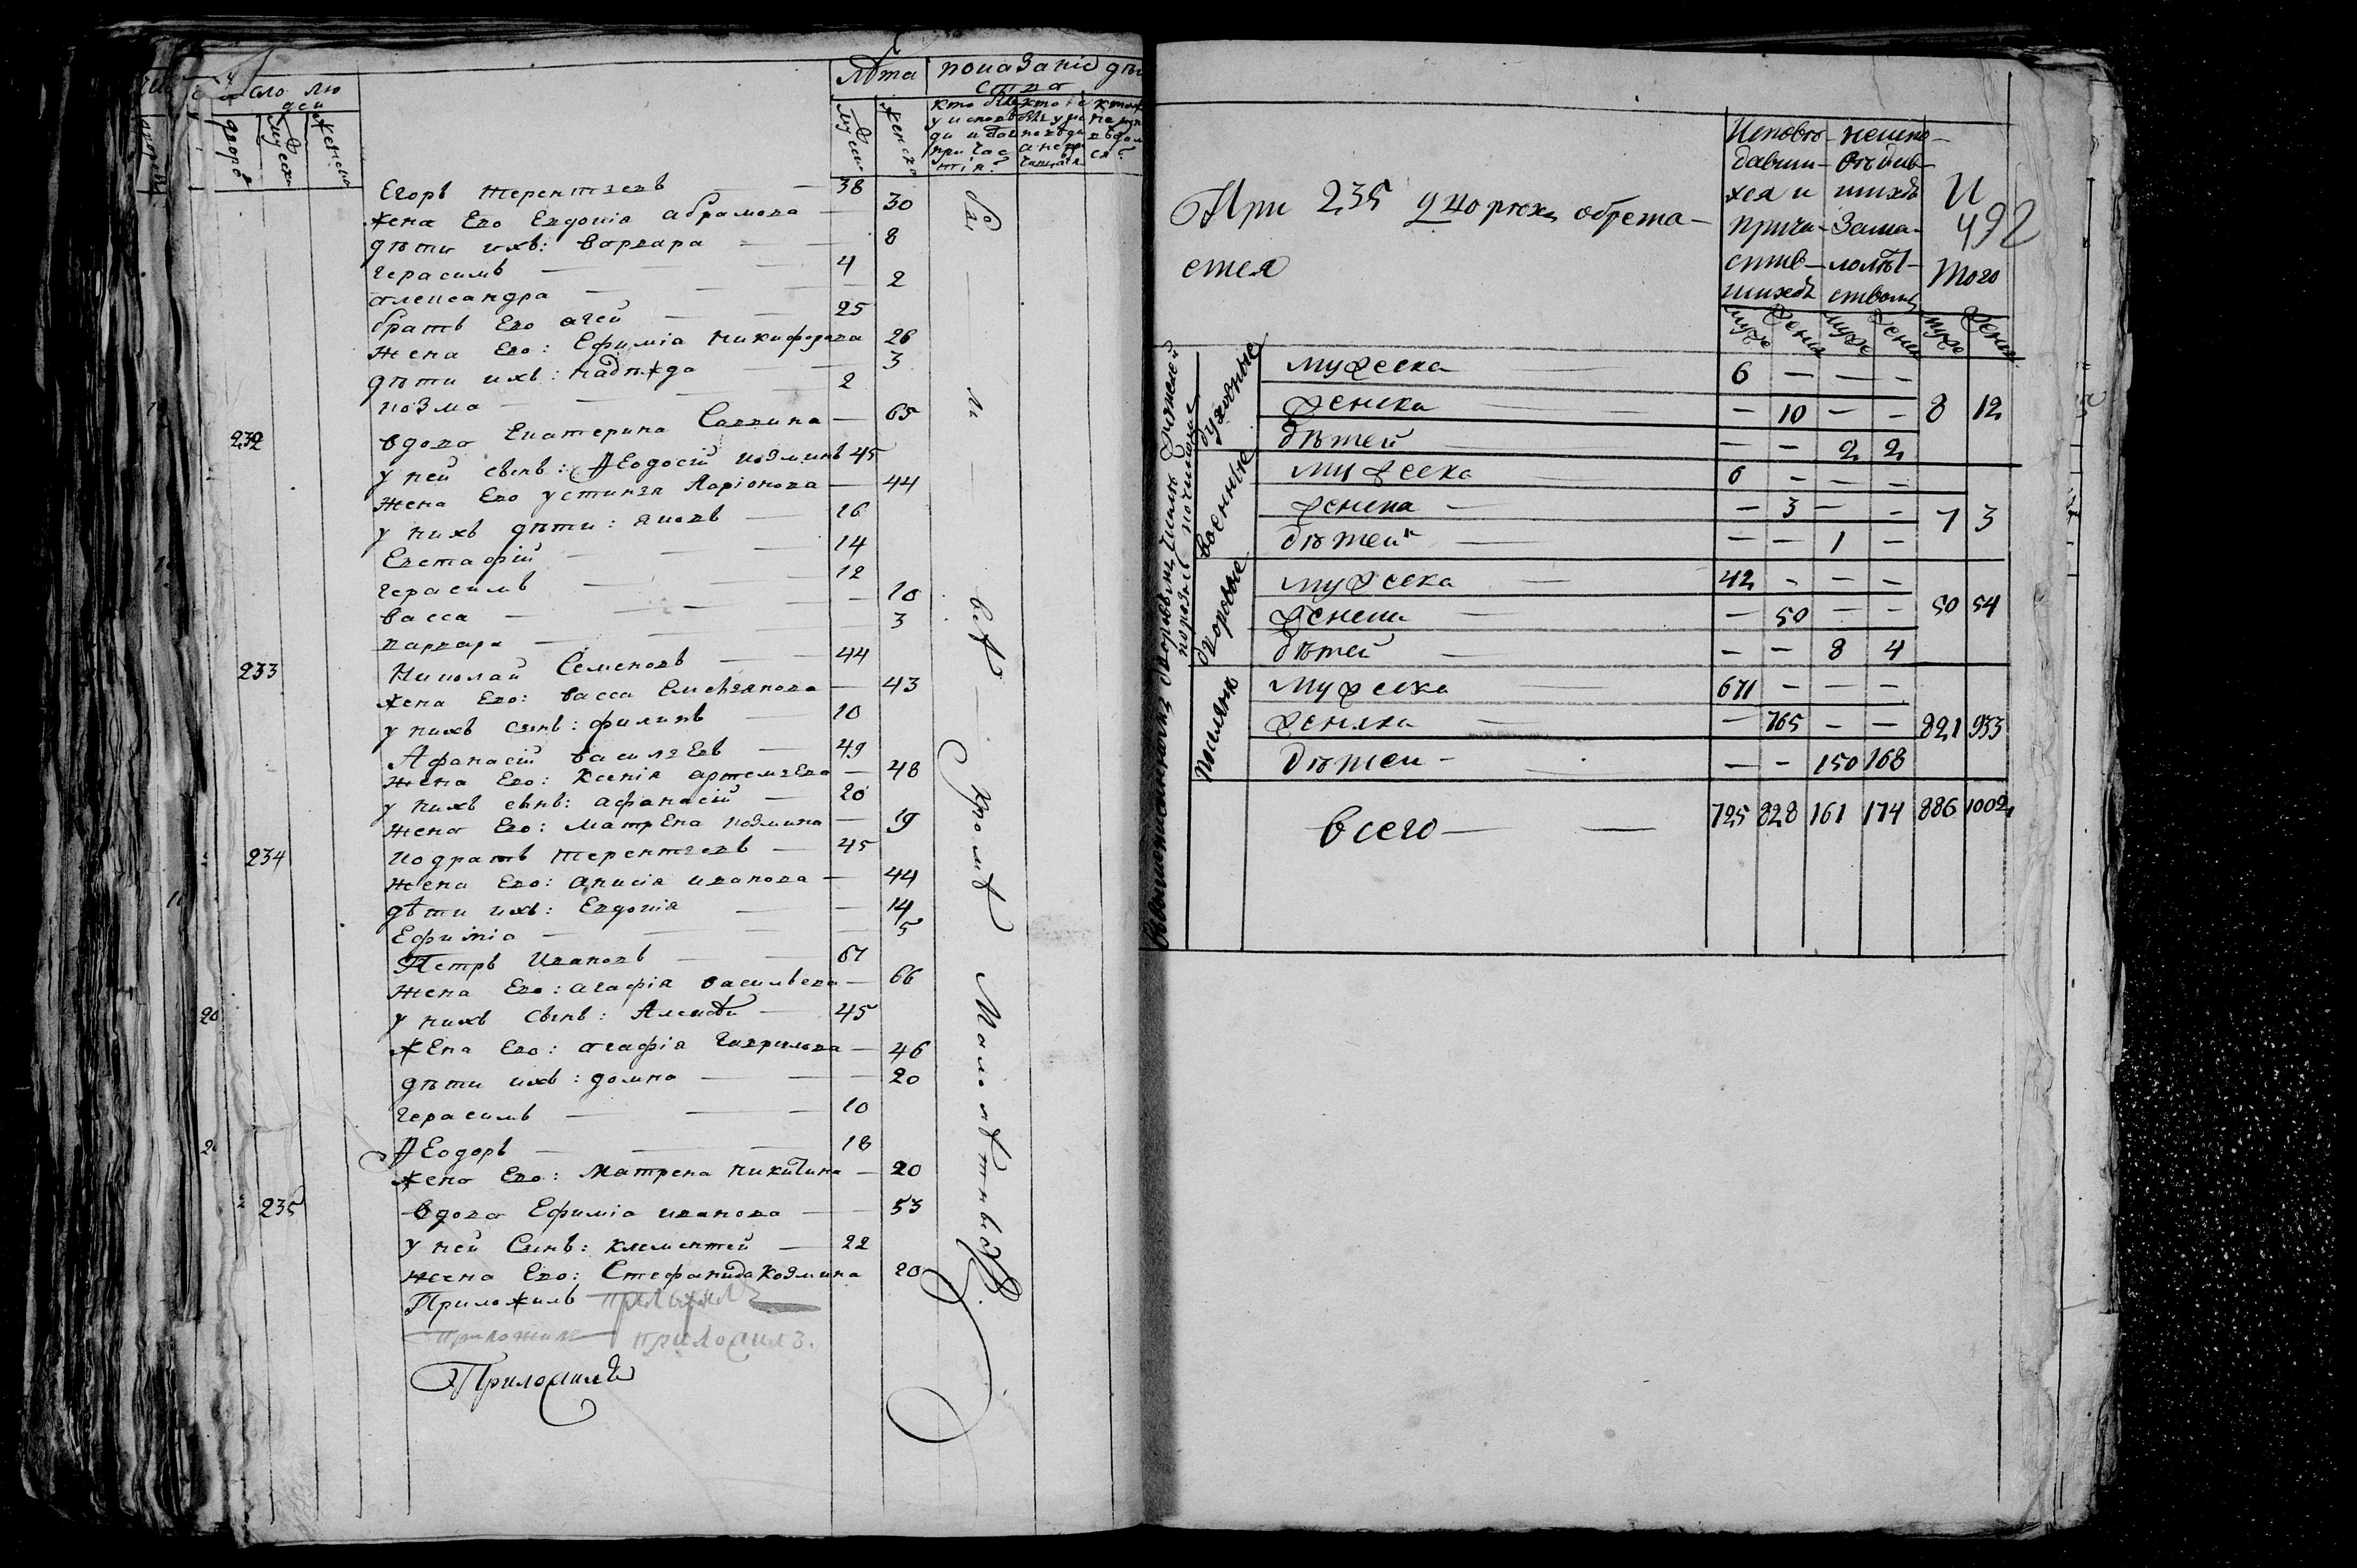 Число людей
дворовъ
мужеска
женска
Лѣта
показаніе дѣй
ства
мужеска
женска
кто былъ
у исповѣ
ди и св.
причас
тія?
Егоръ терентьевъ — 38
жена Его Евдокія абрамова — 30
дѣти ихъ: варвара — 8
герасимъ — 4
александра — 2
братъ Его агей — 25
жена Его: Ефимія никифорова 26
дѣти ихъ: надежда — 3
козма — 2
232 вдова Екатерина Саввина — 65
у ней сынъ: Ѳеодосій козминъ 45
жена Его устинья Ларіонова — 44
у нихъ дѣти: яковъ — 16
Евстафій — 14
герасимъ — 12
васса — 10
варвара — 3
233 Николай Семеновъ — 44
жена Его: васса Емельянова — 43
у нихъ сынъ: филипъ — 10
Афанасій васильЕвъ — 49
жена Его: ксенія артемьЕва — 48
у нихъ сынъ: афанасій — 20
жена Его: матрЕна козмина — 19
234 кодратъ терентьевъ — 45
жена Его: анисія иванова — 44
дѣти ихъ: Евдокія — 14
Ефимія — 5
Петръ Ивановъ — 67
жена Его: агафія васильева — 66
у нихъ сынъ: Алексѣй — 45
жЕна Его: агафія гаврилова — 46
дѣти ихъ: домна — 20
герасимъ — 10
Ѳеодоръ — 18
жена Его: матрена никитина — 20
235 вдова Ефимія иванова — 53
у ней сынъ: климентей — 22
жена Его: Стефанида козмина 20
Приложилъ приложилъ
приложилъ приложилъ.
Приложилъ
были всѣ кромѣ малолѣтныхъ
При 235 дворехъ обрета-
ется
Исповѣ-
давши-
хся и
прича-
стив-
шихся
неиспо-
вѣдав-
шихся
За ма-
лолѣт-
ствомъ
И
того
492
муже
женск
муже
женск
муже
женск
духовные
мужеска — 6 — — —
женска — 10 — — 8 12
дѣтей — — 2 2
военные
мужеска — 6 — — —
женска — 3 — — 7 3
дѣтей — — 1 —
дворовые
мужеска — 42 — — —
женска — 50 — — 50 54
дѣтей — — 8 4
поселяне
мужеска — 671 — — —
женска — 765 — — 821 933
дѣтей — — 150 168
всего — 725 828 161 174 886 1002